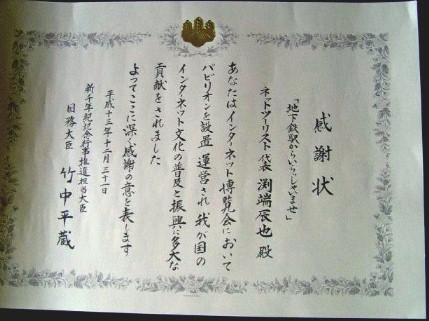 感謝状
「地下鉄駅からいらしませ」
ネットツーリスト代表 渕端辰也 殿
あなたはインターネット博覧会において
パビリオンを設置 運営され 我が国の
インターネット文化の普及と振興に多大な
貢献をされました
よってここに深く感謝の意を表します
平成十三年十二月三十一日
新千年紀記念行事推進担当大臣
国務大臣 竹中平蔵